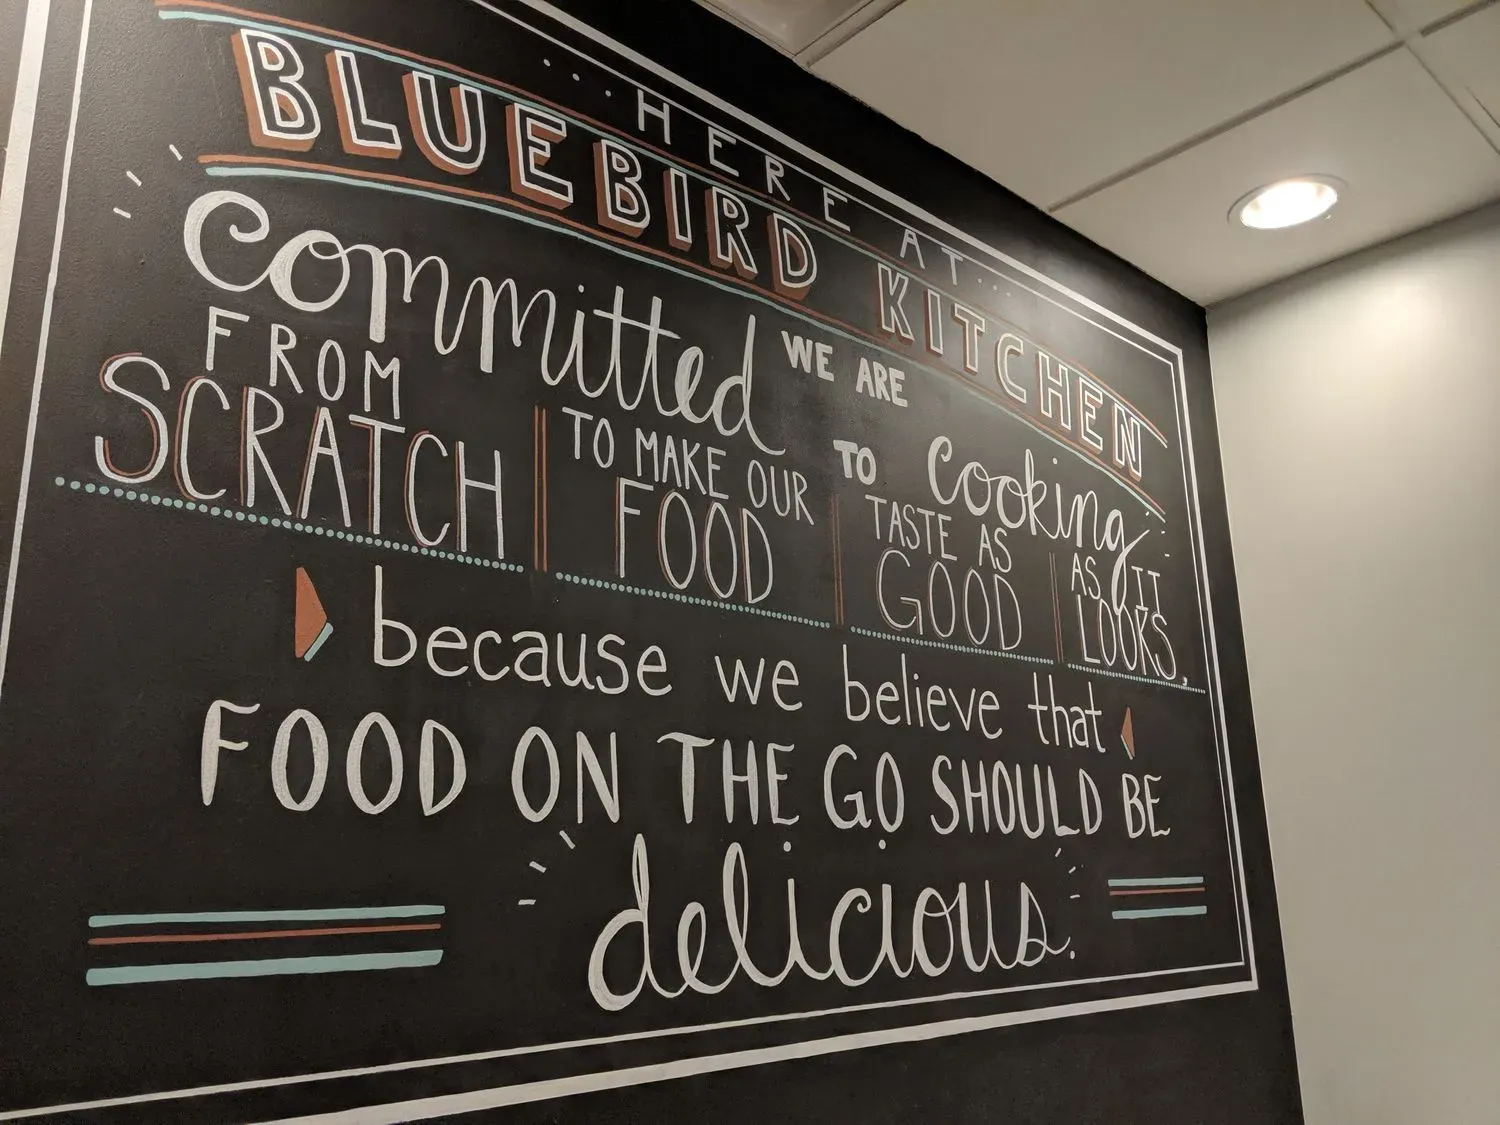 ...HERE AT...
BLUEBIRD KITCHEN
WE ARE
committed TO cooking
FROM SCRATCH
TO MAKE OUR FOOD
TASTE AS GOOD
AS IT LOOKS,
because we believe that
FOOD ON THE GO SHOULD BE
delicious.